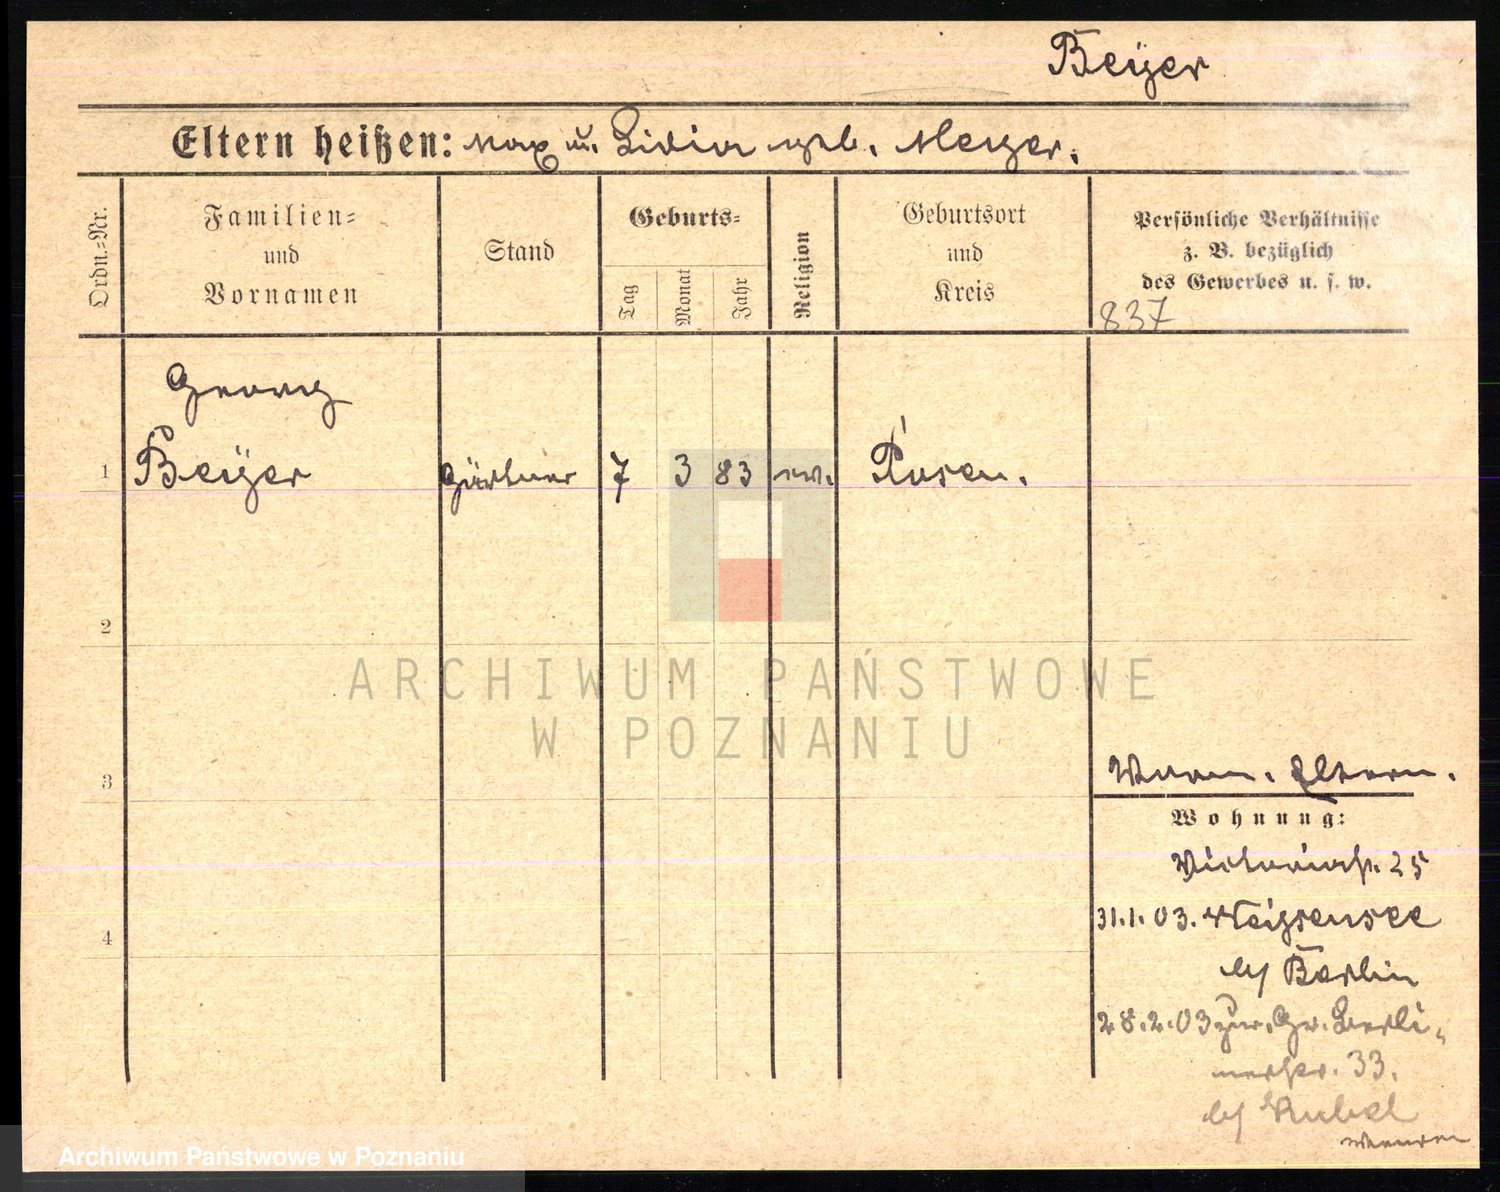 Beyer
Eltern heißen: Max u. Lidia geb. Meyer.
Ordn.-Nr.
Familien- und Vornamen
Stand
Geburts-
Tag
Monat
Jahr
Religion
Geburtsort und Kreis
Persönliche Verhältnisse
z. B. bezüglich
des Gewerbes u. s. w.
837
Georg
1 Beyer Gärtner 7 3 83 ev. Posen.
2
3
Eltern.
Wohnung:
Victoriastr. 25
4
31.1.03. Weissensee
by Berlin
28.2.03 zur. Gr. Berli-
nerstr. 33.
by
ARCHIWUM PAŃSTWOWE
W POZNANIU
Archiwum Państwowe w Poznaniu